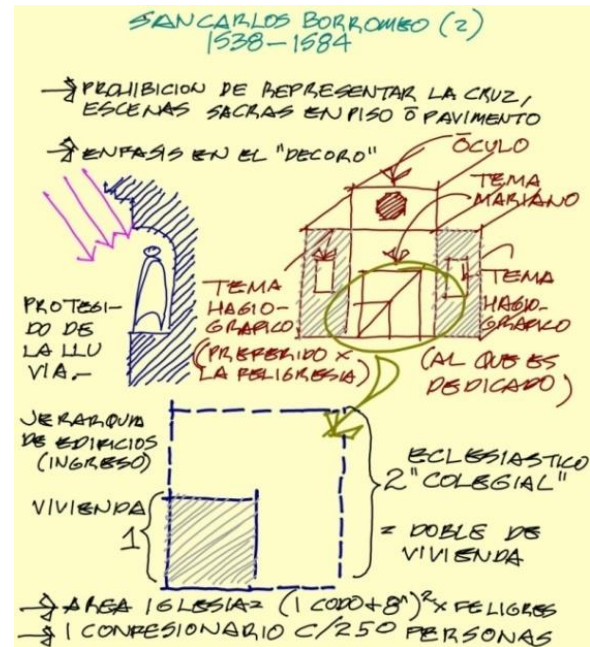 SAN CARLOS BORROMEO (2)
1538-1584
→ PROHIBICION DE REPRESENTAR LA CRUZ,
ESCENAS SACRAS EN PISO Ō PAVIMENTO
→ ENFASIS EN EL "DECORO"
ŌCULO
TEMA
MARIANO
PROTEGI-
DO DE
LA LLU
VIA.-
TEMA
HAGIO-
GRAFICO
(PREFERIDO X
LA FELIGRESIA)
TEMA
HAGIO-
GRAFICO
(AL QUE ES
DEDICADO)
JERARQUIA
DE EDIFICIOS
(INGRESO)
VIVIENDA
1
ECLESIASTICO
2 "COLEGIAL"
= DOBLE DE
VIVIENDA
→ AREA IGLESIA= (1 CODO+8")² X FELIGRES
→ 1 CONFESIONARIO C/250 PERSONAS